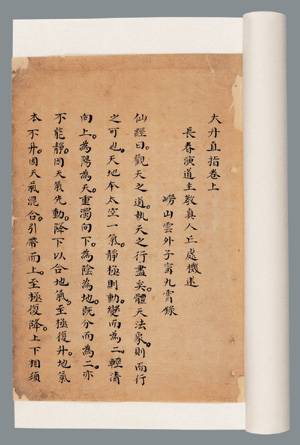 大丹直指卷上
長春演道主教真人丘處機述
嶗山雲外子九霄錄
仙經曰。觀天之道。執天之行盡矣。體天法象。則而行
之可也。天地本太空一氣。靜極則動。變而為二。輕清
向上。為陽為天。重濁向下。為陰為地。既分而為二。亦
不能靜。因天氣先動。降下以合地氣。至極復升。地氣
本不升。因天氣混合。引帶而上。至極復降。上下相須